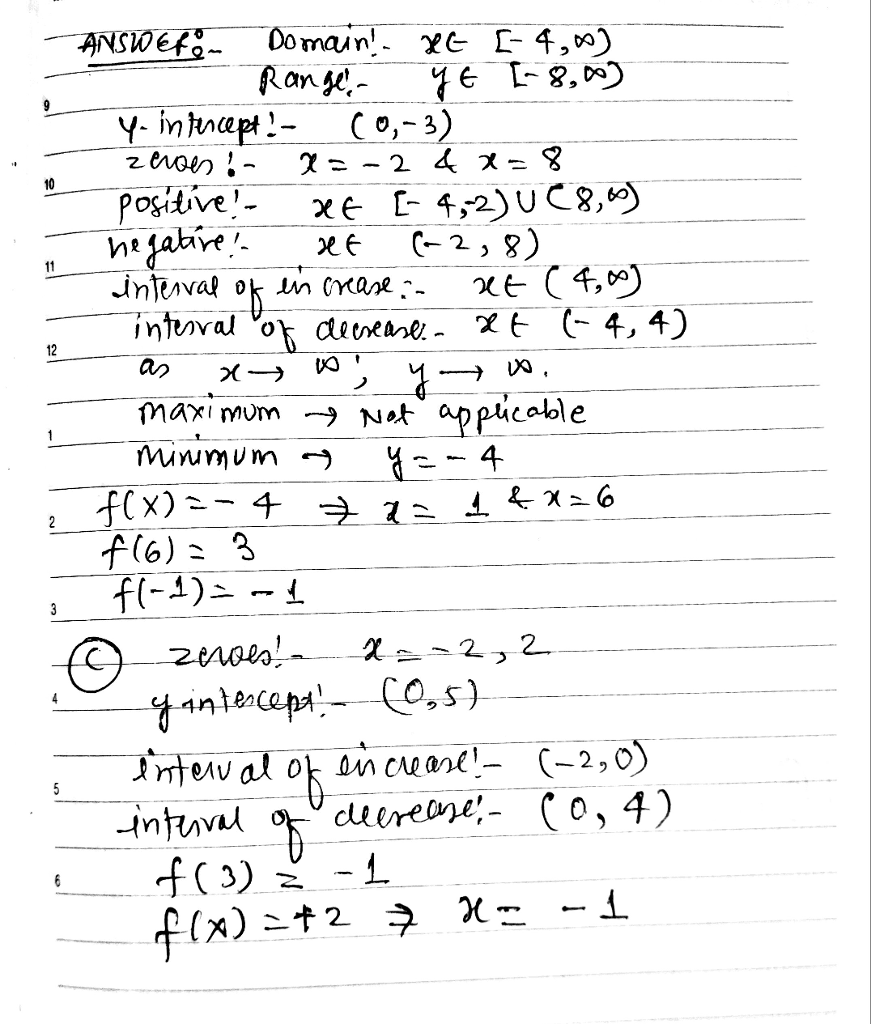 ANSWER:- Domain!- x∈ [-4,∞)
Range!- y∈ [-8,∞)
9
y-intercept!- (0,-3)
zeroes!- x=-2 & x=8
10
positive!- x∈ [-4,-2)∪(8,∞)
negative!- x∈ (-2,8)
11
interval of increase:- x∈ (4,∞)
interval of decrease:- x∈ (-4,4)
12
as x→ ∞; y→ ∞.
maximum → Not applicable
1
minimum → y=-4
2 f(x)=-4 ⇒ x= 1 & x=6
f(6)= 3
3 f(-1)= -1
(C) zeroes!- x=-2,2
4 y intercept!- (0,5)
interval of increase!- (-2,0)
5
interval of decrease!- (0,4)
6 f(3) = -1
f(x)=+2 ⇒ x= -1